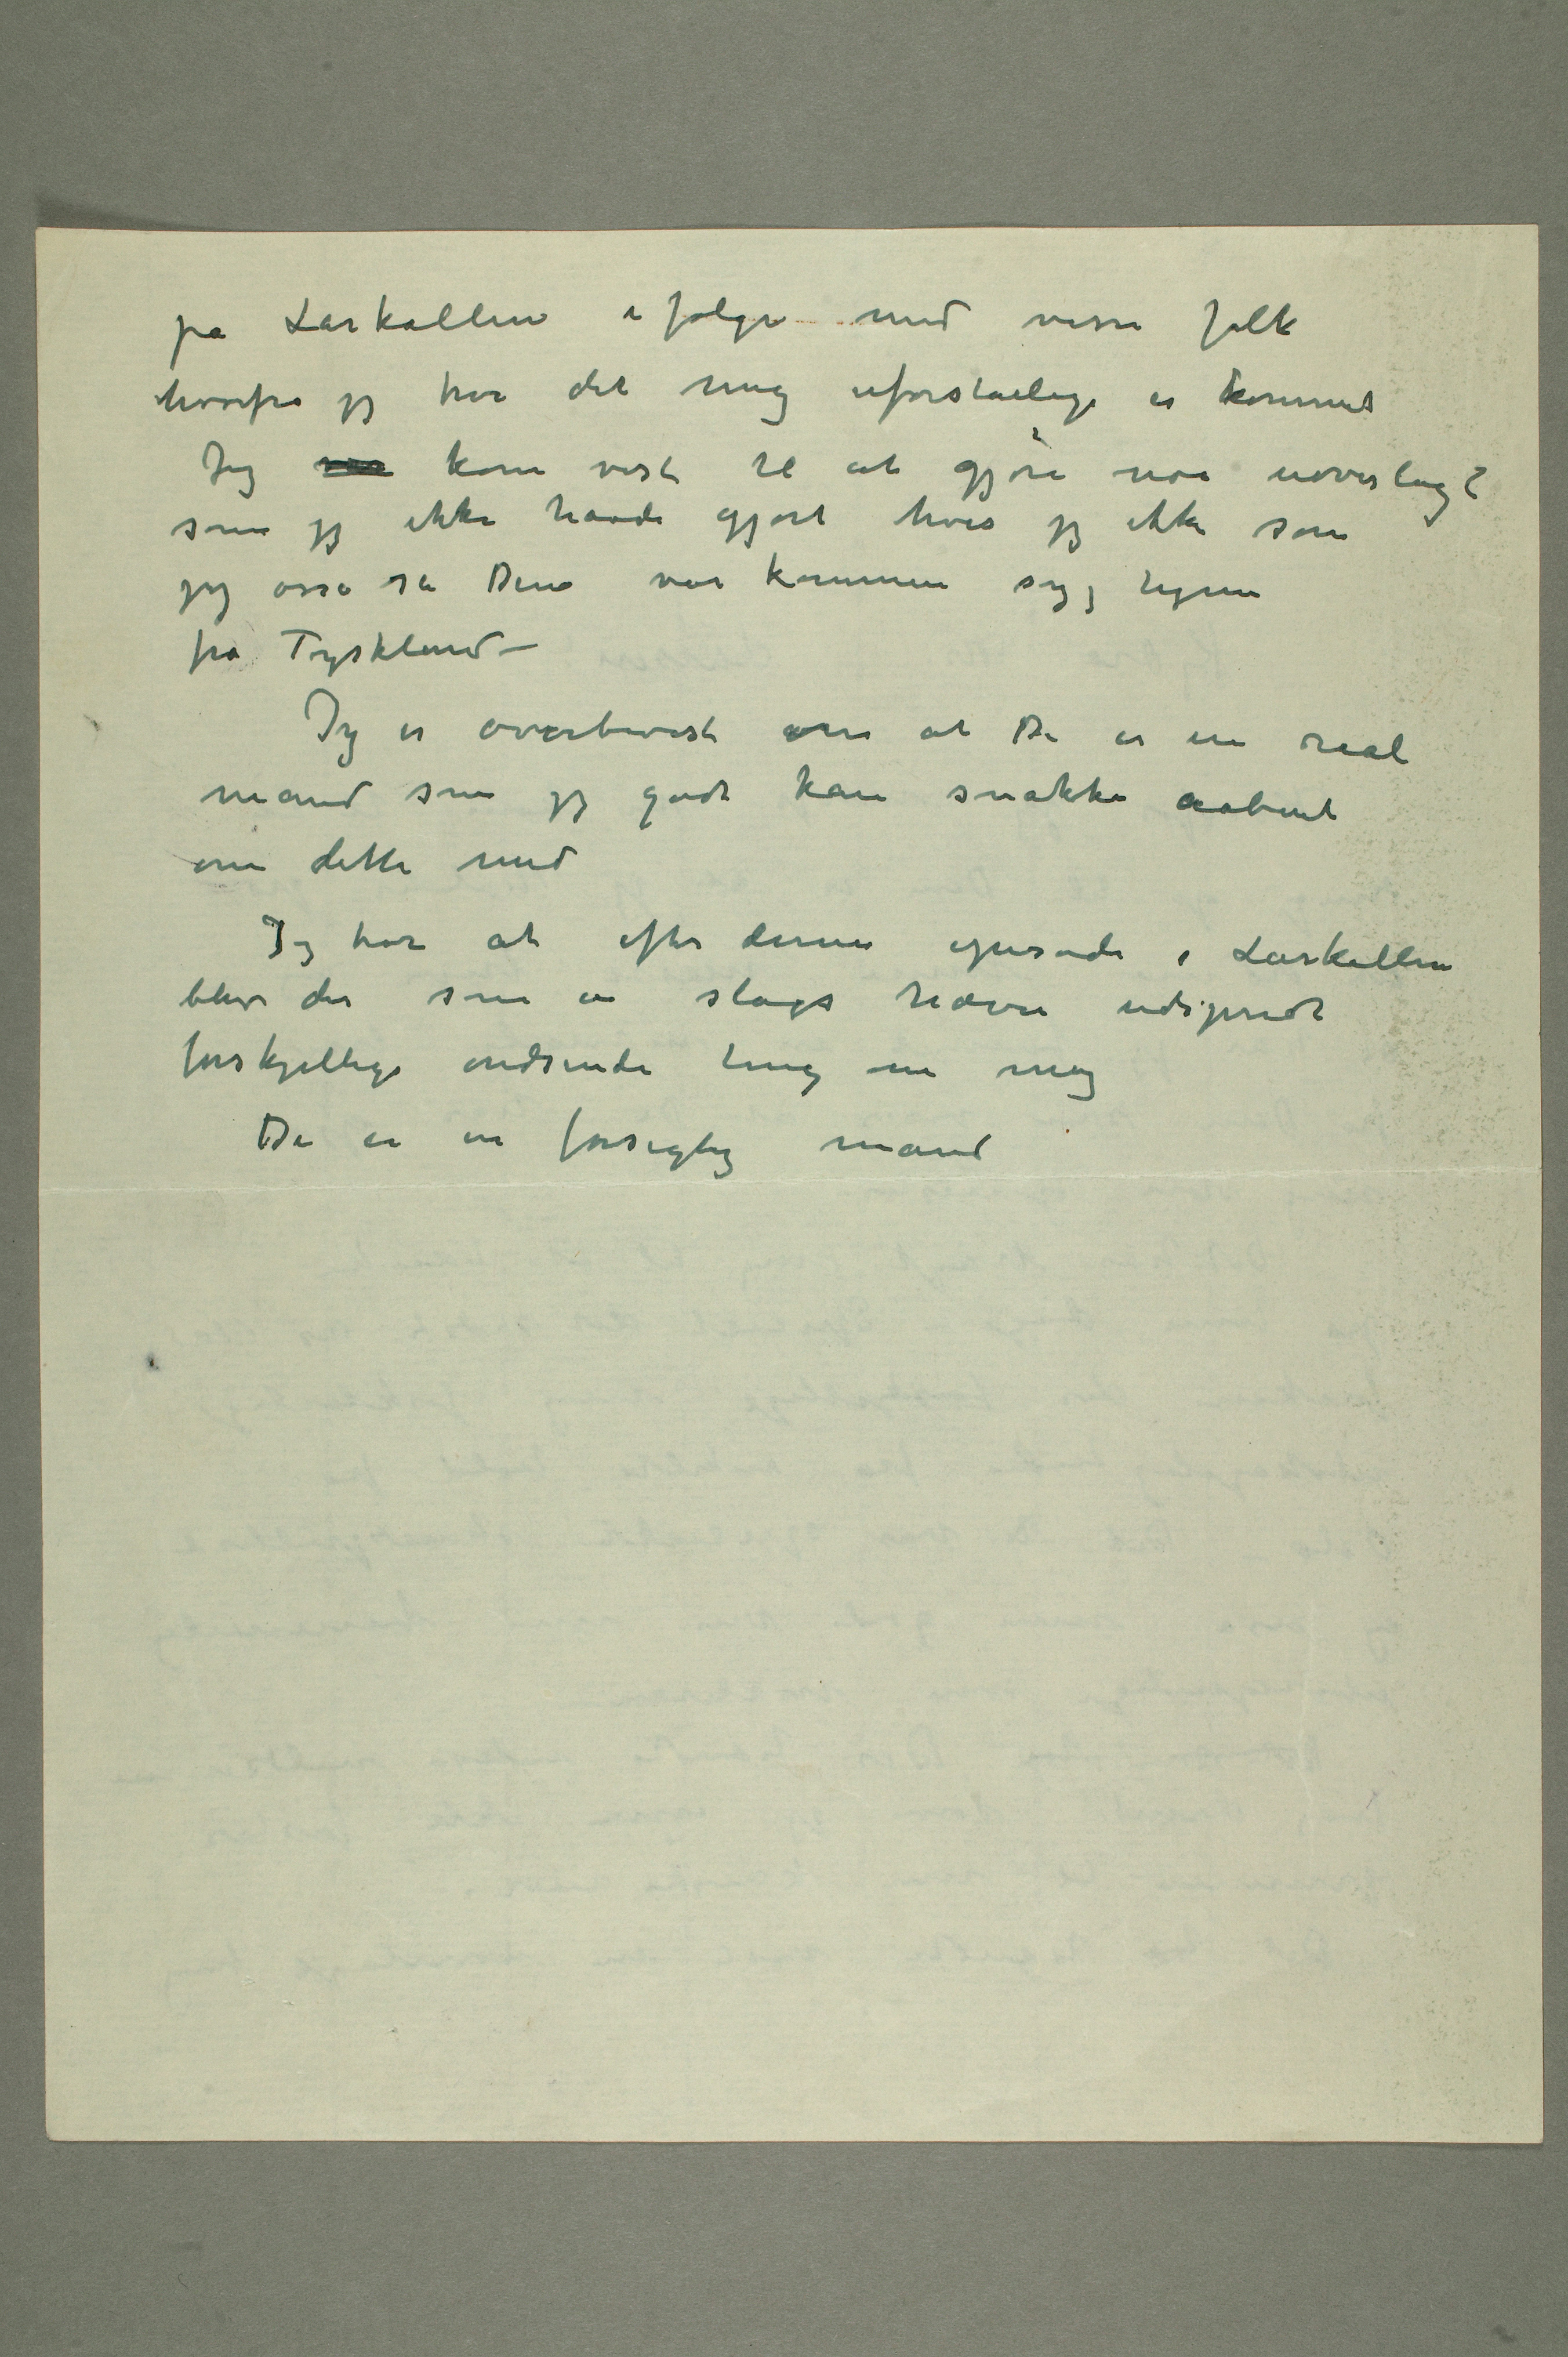 på Larkollen i følge med visse folk
hvorfra jeg tror det mig uforståelige er kommet
Jeg var kom vist til at gjøre noe uoverlagt
som jeg ikke havde gjort hvis jeg ikke som
jeg også sa Dem var kommen syg hjem
fra Tyskland –
Jeg er overbevist om at De er en real
mand som jeg godt kan snakke aabent
om dette med
Jeg tror at efter denne episode i Larkollen
blev der som en slags hævn udspredt
forskjellige ondsinde ting om mig
De er en forsigtig mand